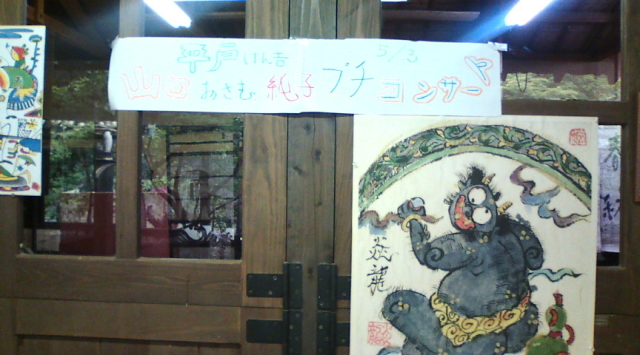 平戸けん吾 5/3
山口おさむ 純子 プチコンサート
炎龍